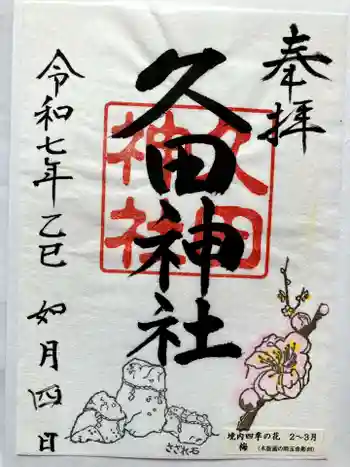 奉拝
久田神社
久田
神社
令和七年乙巳 如月四日
さざれ石
境内四季の花 2～3月
梅